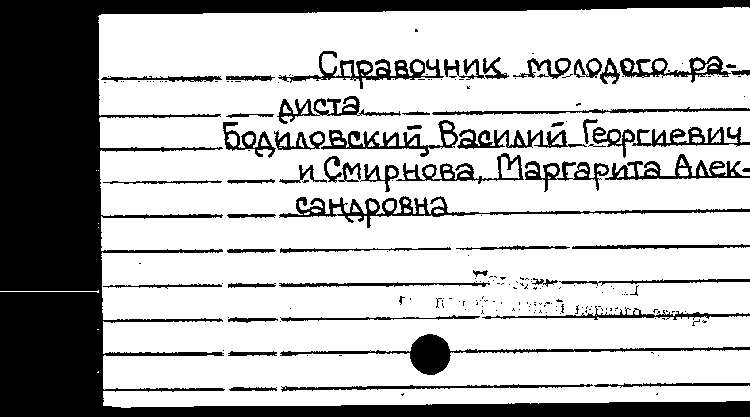 Справочник молодого ра-
диста
Бодиловский, Василий Георгиевич
и Смирнова, Маргарита Алек-
сандровна
первого автора